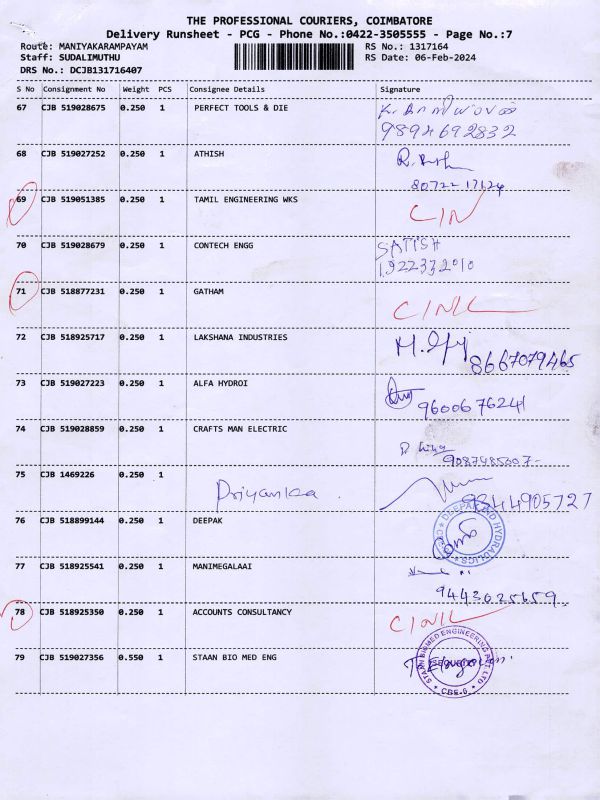 THE PROFESSIONAL COURIERS, COIMBATORE
Delivery Runsheet - PCG - Phone No.:0422-3505555 - Page No.:7
Route: MANIYAKARAMPAYAM
RS No.: 1317164
Staff: SUDALIMUTHU
RS Date: 06-Feb-2024
DRS No.: DCJB131716407
S No Consignment No Weight PCS Consignee Details Signature
67 CJB 519028675 0.250 1 PERFECT TOOLS & DIE
9894692832
68 CJB 519027252 0.250 1 ATHISH
69 CJB 519051385 0.250 1 TAMIL ENGINEERING WKS
70 CJB 519028679 0.250 1 CONTECH ENGG SATISH
71 CJB 518877231 0.250 1 GATHAM
72 CJB 518925717 0.250 1 LAKSHANA INDUSTRIES
8667079465
73 CJB 519027223 0.250 1 ALFA HYDROI
9600676241
74 CJB 519028859 0.250 1 CRAFTS MAN ELECTRIC
75 CJB 1469226 0.250 1 Priyanka .
9344905727
76 CJB 518899144 0.250 1 DEEPAK
77 CJB 518925541 0.250 1 MANIMEGALAAI
9443025659
78 CJB 518925350 0.250 1 ACCOUNTS CONSULTANCY
79 CJB 519027356 0.550 1 STAAN BIO MED ENG
STAAN BIOMED ENGINEERING PVT LTD
CBE-6